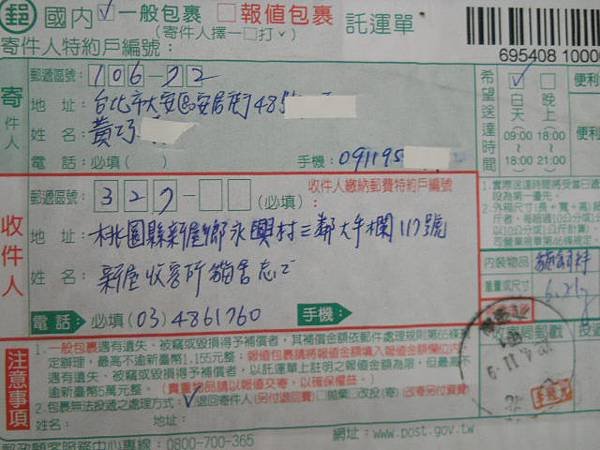 郵 國內 ☑一般包裹 □報值包裹 託運單
(寄件人擇一□打ˇ)
寄件人特約戶編號：
695408 1000
寄件人
郵遞區號：106-72
地 址：台北市大安區安居街48
姓 名：黃巧
電 話：必填( ) 手機：091195
希望送達時間
☑白天 □晚上 便利
09:00 18:00
18:00 21:00
收件人
郵遞區號：327-□□(必填)： 收件人繳納郵費特約戶編號
地 址：桃園縣新屋鄉永興村三鄰大牛欄117號
姓 名：新屋收容所貓舍志工
電 話：必填(03)4861760 手機：
內裝物品
重量或尺寸
注意事項
1.一般包裹遇有遺失、被竊或毀損得予補償者，其補償金額依郵件處理規則第65條
定辦理，最高不逾新臺幣1,155元整。報值包裹請將報值金額填入報值金額欄位內
遇有遺失、被竊或毀損得予補償者，以託運單上註明之報值金額為限，但最高不
逾新臺幣5萬元整。(貴重物品請以報值交寄，以確保權益。)
2.包裹無法投遞之處理方式：☑退回寄件人(另付退回費)□拋棄□改投(寄)
姓名： 地址：
郵政顧客服務中心專線：0800-700-365 網址：www.post.gov.tw